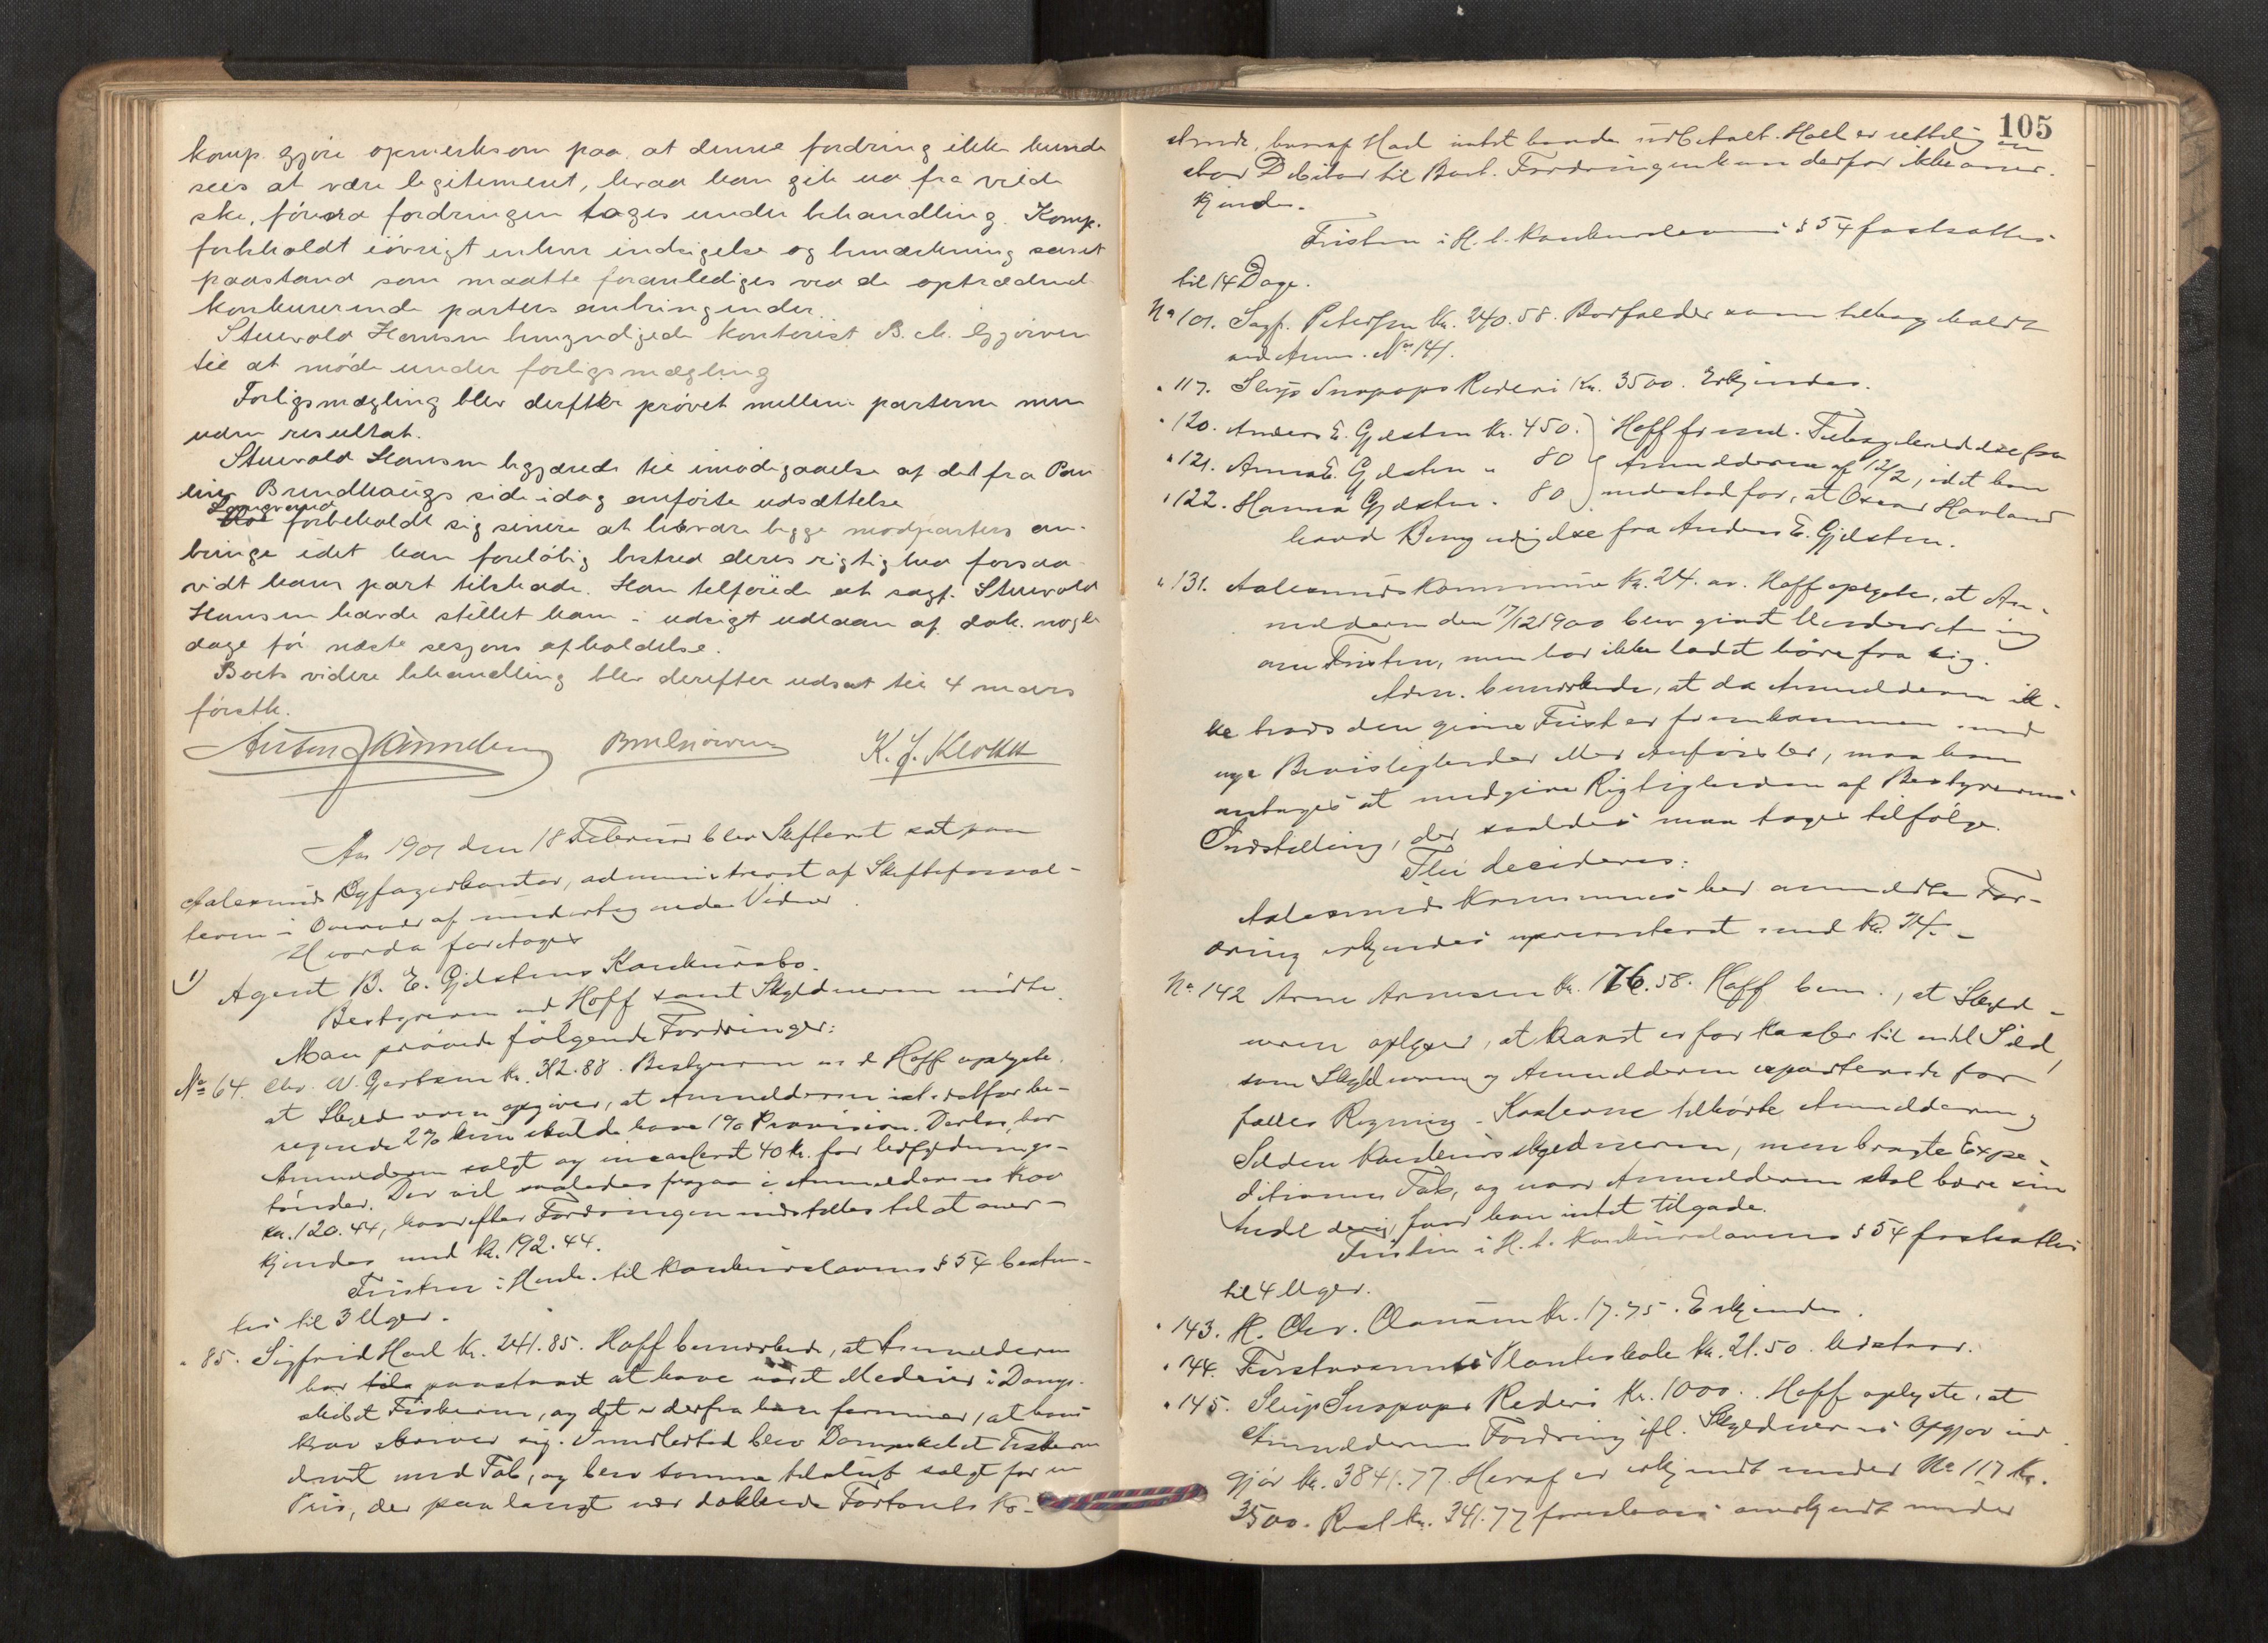 komp. gjøre opmerksom paa, at denne fordring ikke kunde
sees at være legitimeret, hvad han gik ud fra vilde
ske, førend fordringen toges under behandling. Komp.
forbeholdt iøvrigt enhver indsigelse og bemærkning samt
paastand som maatte foranlediges ved de optrædende
konkurerende parters anbringender.
Stuevold Hansen bemyndigede kontorist B. M. Gjørven
til at møde under forligsmægling
Forligsmægling blev derefter prøvet mellem parterne men
uden resultat.
Stuevold Hansen begjærede til imødegaaelse af det fra Pau
line Brundhaugs side idag anførte udsættelse
Longvand
forbeholdt sig senere at besvare begge modparters an-
bringe idet han foreløbig bestred deres rigtighed forsaa-
vidt hans part tilskade. Han tilføiede at sagf. Stuevold
Hansen havde stillet ham i udsigt udlaan af dok. nogle
dage før næste sesjons afholdelse.
Boets videre behandling blev derefter udsat til 4 mars
førstk.
K. J. Klokk
Aar 1901 den 18 Februar blev Skifteret sat paa
Aalesunds Byfogedkontor, administreret af Skifteforval-
teren i Overvær af undertegnede Vidner.
Hvorda foretoges
1) Agent B. E. Gjelstens Konkursbo.
Bestyreren ved Hoff samt Skyldneren mødte.
Man prøvede følgende Fordringer:
No 64. Chr. W. Gjertsen Kr. 312.88. Bestyreren ved Hoff oplyste,
at Skyldneren opgiver, at Anmelderen istedetfor be-
regnede 2% kun skulde have 1% Provision. Derhos har
Anmelderen solgt og incasseret 40 kr. for
tønder. Der vil saaledes fragaa i Anmelderens Krav
kr. 120.44, hvorefter Fordringen indstilles til at aner-
kjendes med kr. 192.44.
Fristen i Henh. til Konkurslovens § 54 bestem-
tes til 3 Uger.
" 85. Sigfrid Hoel Kr. 241.85. Hoff bemærkede, at Anmelderen
har paastaaet at have været Medeier i Damp-
skibet Fiskeren, og det er derfra han formener, at hans
Krav skriver sig. Imidlertid blev Dampskibet Fiskeren
drevet med Tab, og blev samme tilslut solgt for en
Pris, der paa langt nær dækkede Fartøiets Ko-
105
stende, hvoraf Hoel intet havde udbetalt. Hoel er rettelig en
stor Debitor til Boet. Fordringen kan derfor ikke aner-
kjendes.
Fristen i H. t. Konkurslovens § 54 fastsattes
til 14 Dage.
No 101. Sagf. Petersen Kr. 240.58. Bortfalder som tilbagekaldt
ved Anm. No 141.
" 117. Slup Snapops Rederi Kr. 3500. Erkjendes.
" 120. Anders E. Gjelsten Kr. 450. Hoff freml. Tilbagekaldelse fra
" 121. Anna E. Gjelsten " 80 Anmelderne af 12/2, idet han
" 122. Hanna Gjelsten " 80 indestod for, at Oscar Havland
havde Bemyndigelse fra Anders E. Gjelsten.
" 131. Aalesunds Kommune Kr. 24. Hoff oplyste, at An-
melderen den 17/12 1900 blev givet Underretning
om Fristen, men har ikke ladet høre fra sig.
Adm. bemærkede, at da Anmelderen ik-
ke trods den givne Frist er fremkommen med
nye Bevisligheder eller Anførsler, maa han
antages at medgive Rigtigheden af Bestyrerens
Indstilling, der saaledes maa tages tilfølge.
Thi decideres:
Aalesunds Kommunes her anmeldte For-
dring erkjendes uprioriteret med Kr. 24.-
No 142 Arne Arnesen Kr. 176.58. Hoff bem., at Skyld-
neren oplyser, at Kravet er for Kasser til endel Sild,
som Skyldneren og Anmelderen exporterede for
fælles Regning. Kasserne tilhørte Anmelderen og
Silden Konkursskyldneren, men bragte Expe-
ditionen Tab, og naar Anmelderen skal bære sin
Andel deri, faar han intet tilgode.
Fristen i H. t. Konkurslovens § 54 fastsattes
til 4 Uger.
" 143. H. Chr. Clausen Kr. 17.75. Erkjendes.
" 144. Planteskole Kr. 21.50. Udstaar.
" 145. Slup Snapops Rederi Kr. 1000. Hoff oplyste, at
Anmelderens Fordring ifl. Skyldnerens Opgjør ud-
gjør kr. 3841.77. Heraf er erkjendt under No 117 Kr.
3500. Rest kr. 341.77 foreslaaes anerkjendt under